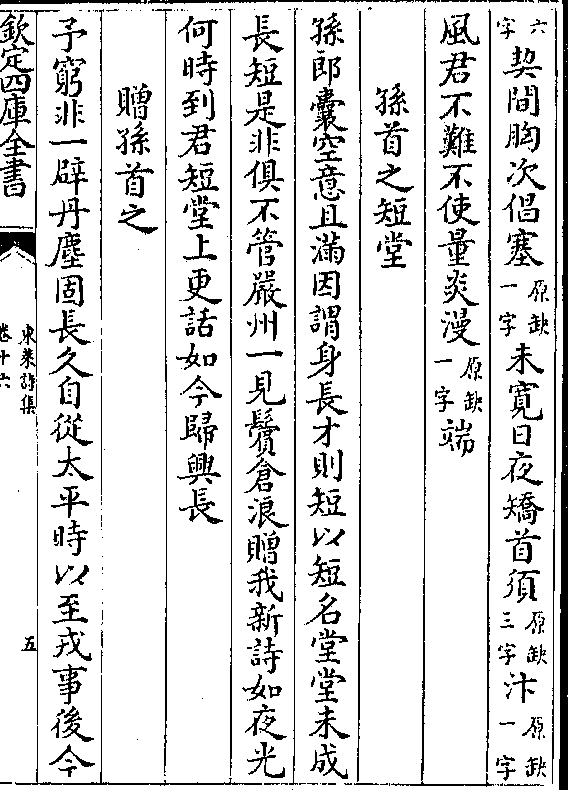 六字契間胸次倡塞原缺一字未寛日夜矯首須原缺三字汴原缺一字
風君不難不使量炎漫原缺一字端
孫首之短堂
孫郎囊空意且滿因謂身長才則短以短名堂堂未成
長短是非俱不管嚴州一見鬢倉浪贈我新詩如夜光
何時到君短堂上更話如今歸興長
贈孫首之
予窮非一辟丹塵固長久自從太平時以至戎事後今
欽定四庫全書
東萊詩集
卷十六
五